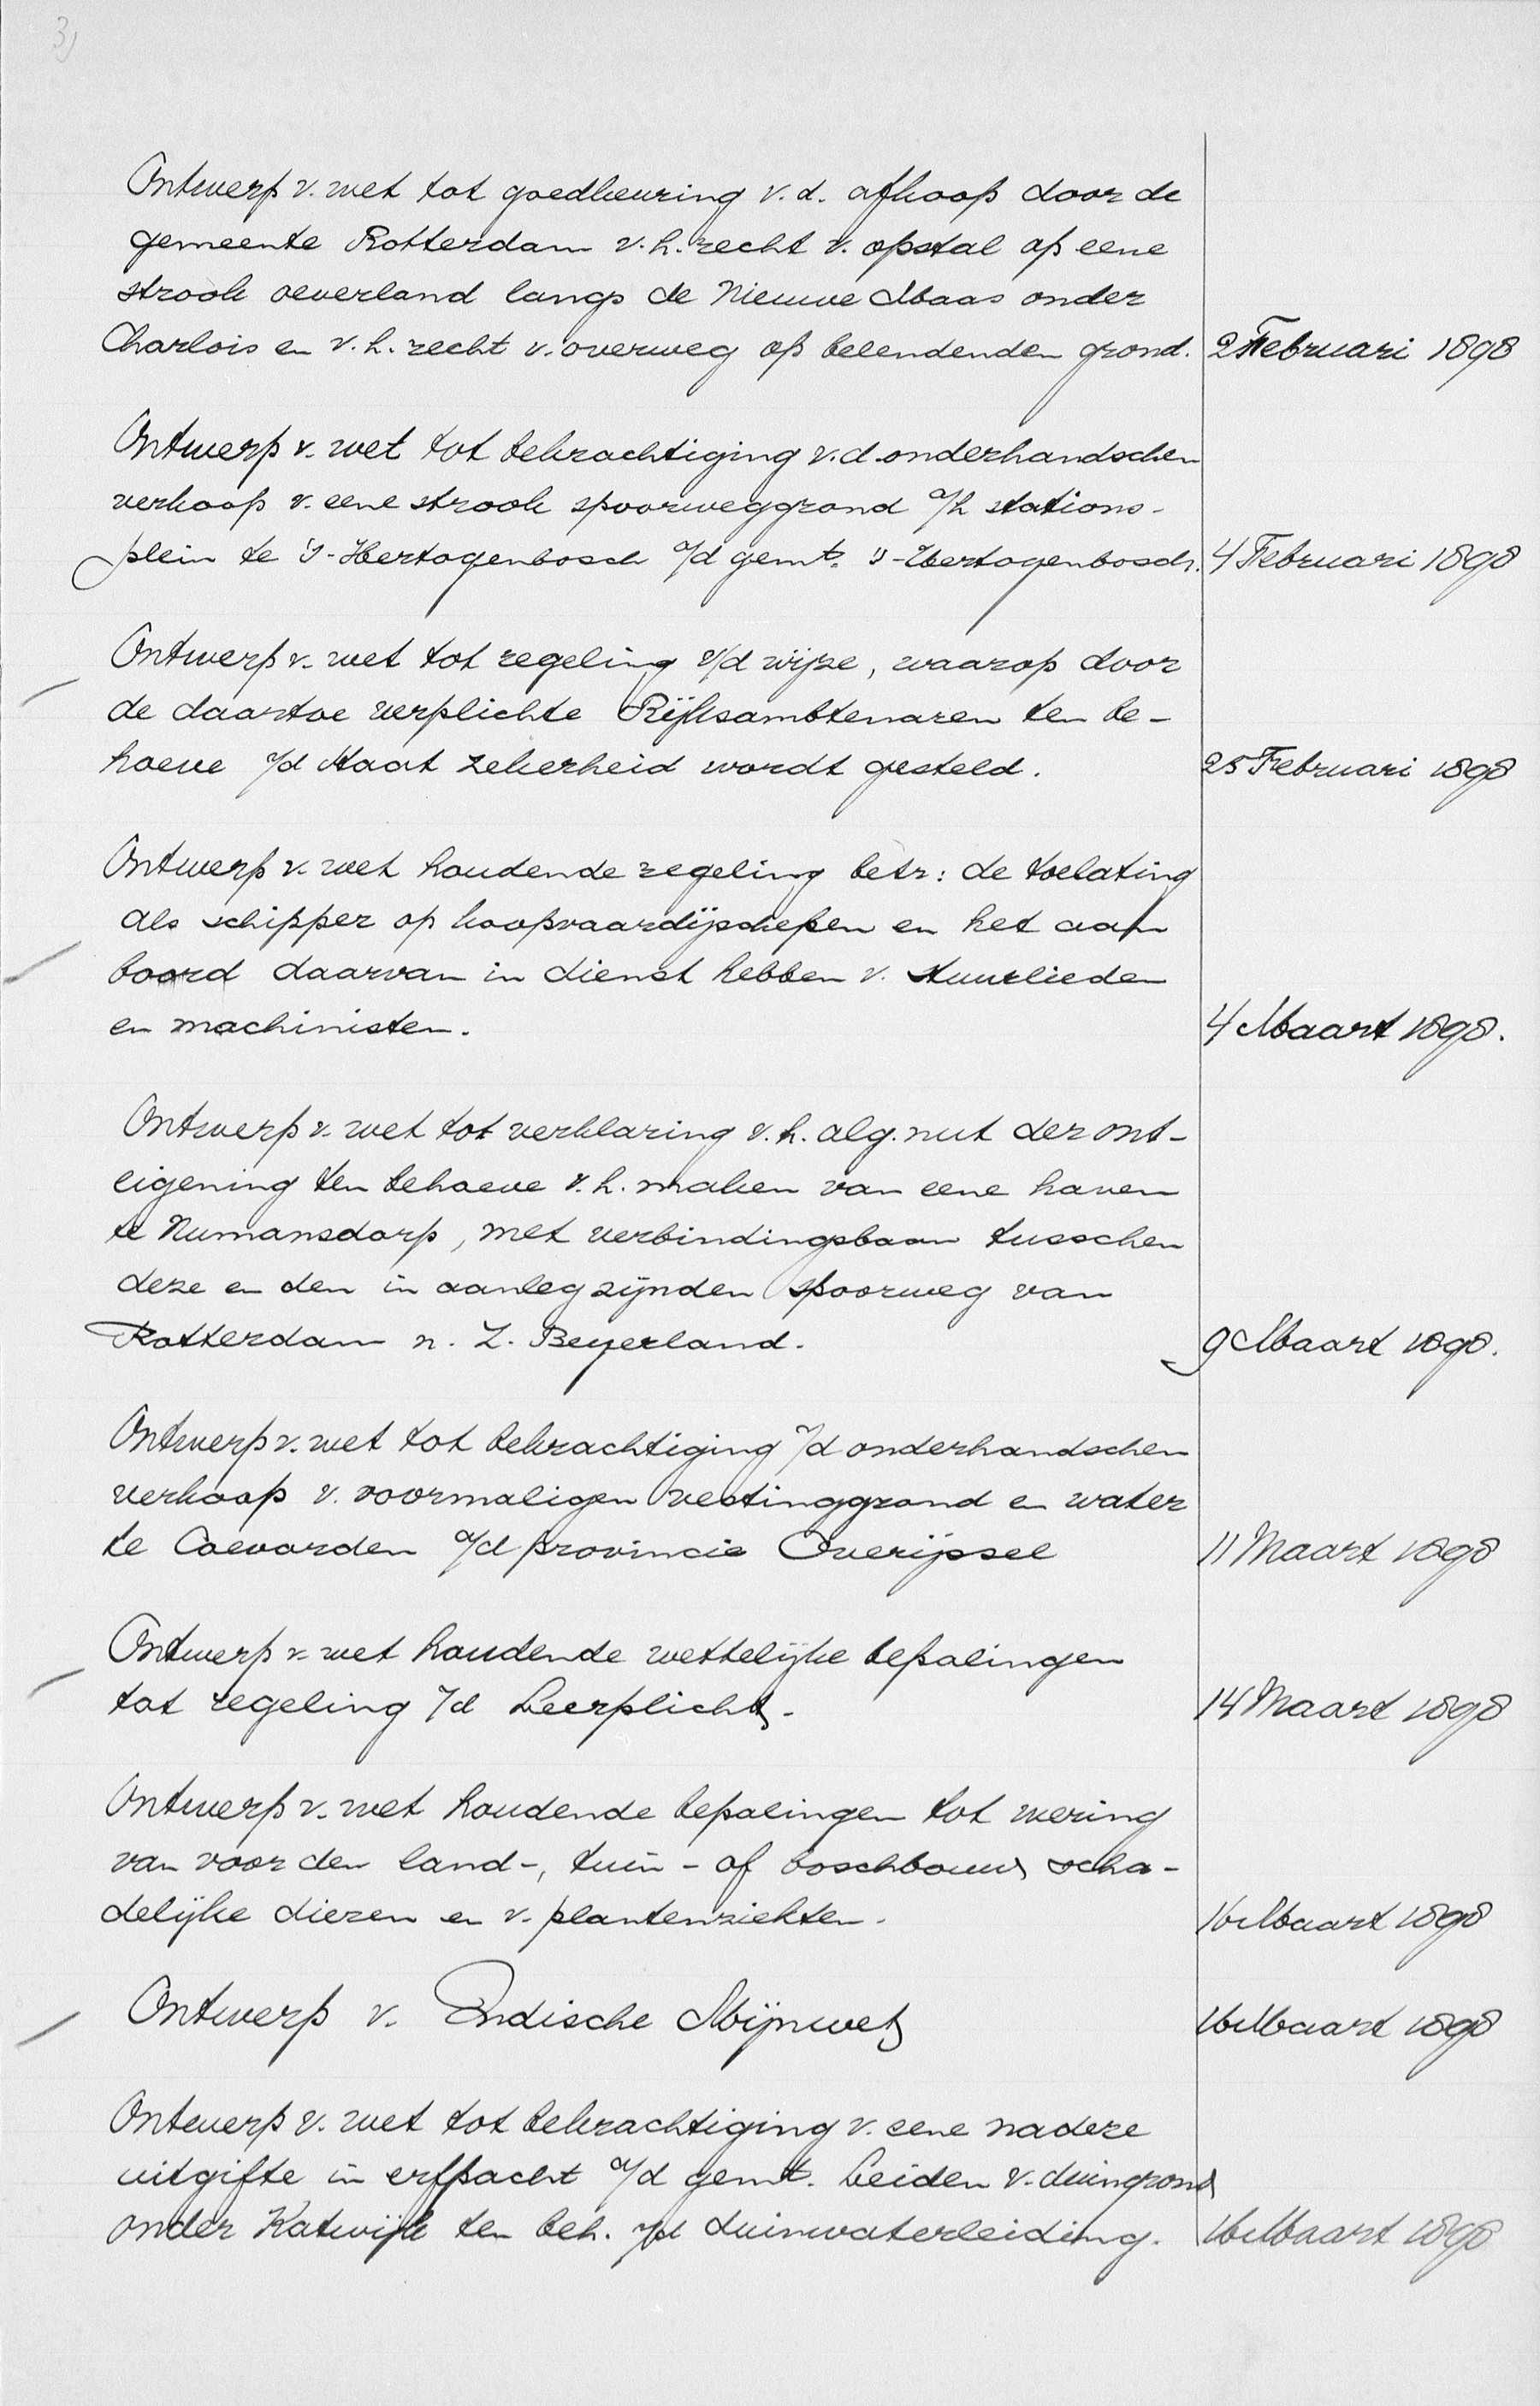 3)
Ontwerp v. wet tot goedkeuring v. d. afkoop door de
gemeente Rotterdam v. h. recht v. opstal op eene
strook oeverland langs de Nieuwe Maas onder
Charlois en v. h. recht v. overweg op belendenden grond. 2 Februari 1898
Ontwerp v. wet tot bekrachtiging v. d. onderhandschen
verkoop v. eene strook spoorweggrond a/h stations-
plein te 's-Hertogenbosch a/d gemt. 's-Hertogenbosch. 4 Februari 1898
Ontwerp v. wet tot regeling v/d wijze, waarop door
de daartoe verplichte Rijksambtenaren ten be-
hoeve v/d Staat zekerheid wordt gesteld. 25 Februari 1898
Ontwerp v. wet houdende regeling betr: de toelating
als schipper op koopvaardijschepen en het aan
boord daarvan in dienst hebben v. stuurlieden
en machinisten. 4 Maart 1898.
Ontwerp v. wet tot verklaring v. h. alg. nut der ont-
eigening ten behoeve v. h. maken van eene haven
te Numansdorp, met verbindingsbaan tusschen
deze en den in aanleg zijnden spoorweg van
Rotterdam n. Z. Beyerland. 9 Maart 1898.
Ontwerp v. wet tot bekrachtiging v/d onderhandschen
verkoop v. voormaligen vestinggrond en water
te Coevorden a/d provincie Overijssel 11 Maart 1898
Ontwerp v. wet houdende wettelijke bepalingen
tot regeling v/d Leerplicht. 14 Maart 1898
Ontwerp v. wet houdende bepalingen tot wering
van voor den land-, tuin- of boschbouw scha-
delijke dieren en v. plantenziekten. 16 Maart 1898
Ontwerp v. Indische Mijnwet 16 Maart 1898
Ontwerp v. wet tot bekrachtiging v. eene nadere
uitgifte in erfpacht a/d gemt. Leiden v. duingrond
onder Katwijk ten beh. v/d duinwaterleiding. 16 Maart 1898